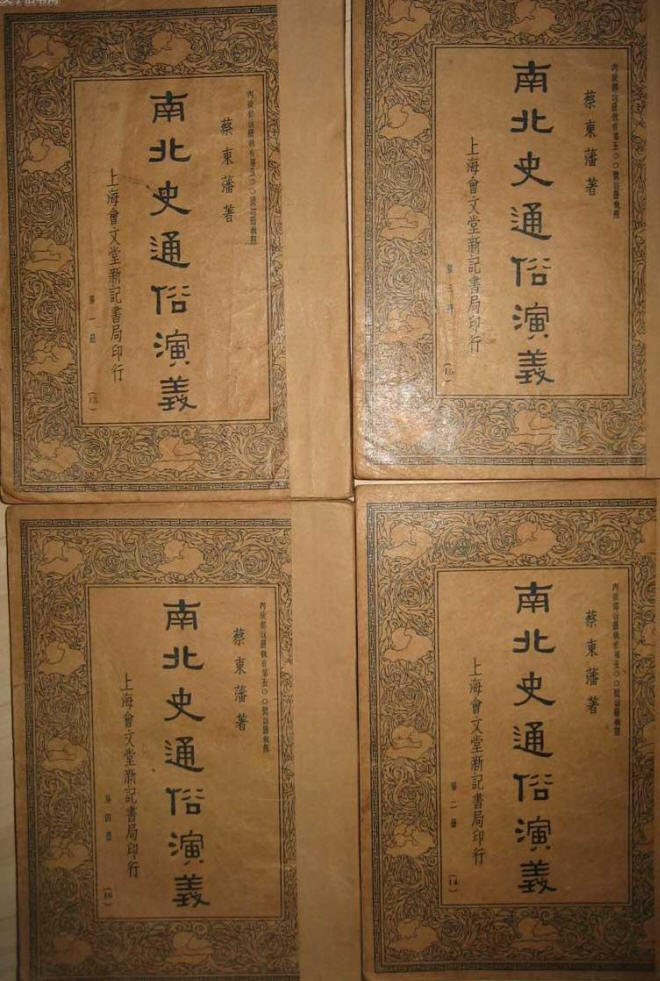 蔡東藩著
南北史通俗演義
上海會文堂新記書局印行
第一册
蔡東藩著
南北史通俗演義
上海會文堂新記書局印行
第三册
蔡東藩著
南北史通俗演義
上海會文堂新記書局印行
第四册
蔡東藩著
南北史通俗演義
上海會文堂新記書局印行
第二册